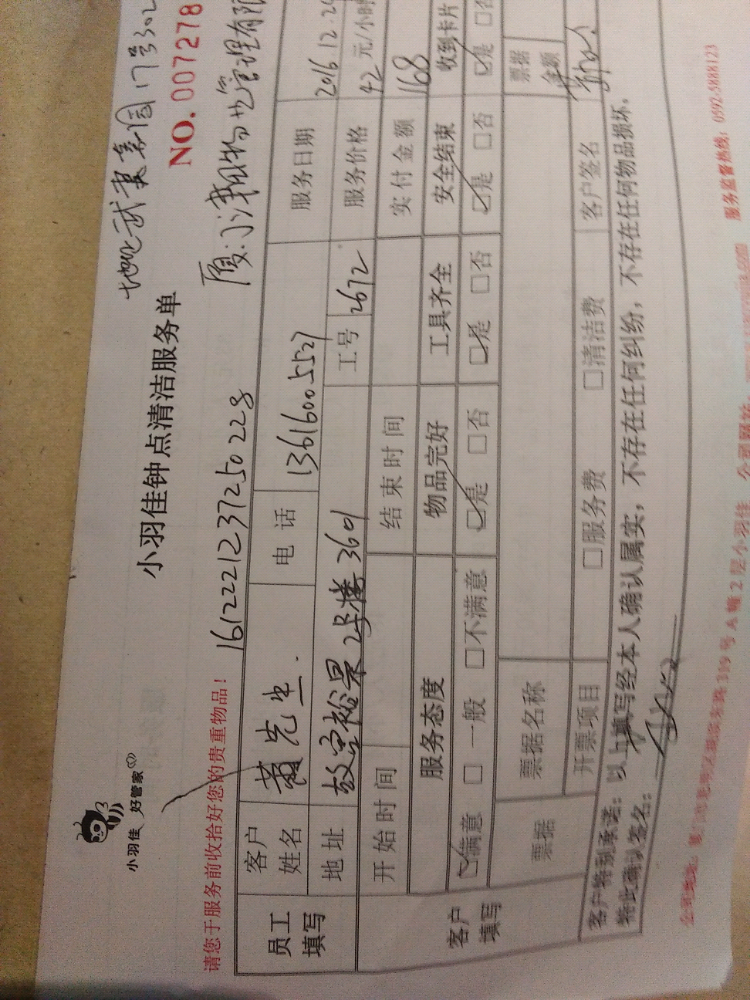 小羽佳 好管家
小羽佳钟点清洁服务单
NO. 007278
请您于服务前收拾好您的贵重物品！
1612221237250228
员工填写
客户姓名
黄先生
电话
13616005527
服务日期
2016.12.2
地址
2号楼3601
工号
2672
服务价格
42 元/小时
开始时间
结束时间
实付金额
168
客户填写
服务态度
物品完好
工具齐全
安全结束
收到卡片
☑满意 □一般 □不满意
☑是 □否
□是 □否
☑是 □否
☑是 □否
票据
票据名称
票据金额
开票项目
□服务费 □清洁费
客户签名
客户特别承诺：以上填写经本人确认属实，不存在任何纠纷，不存在任何物品损坏，
特此确认签名：
319号A幢2层小羽佳
服务监督热线：0592-5888123